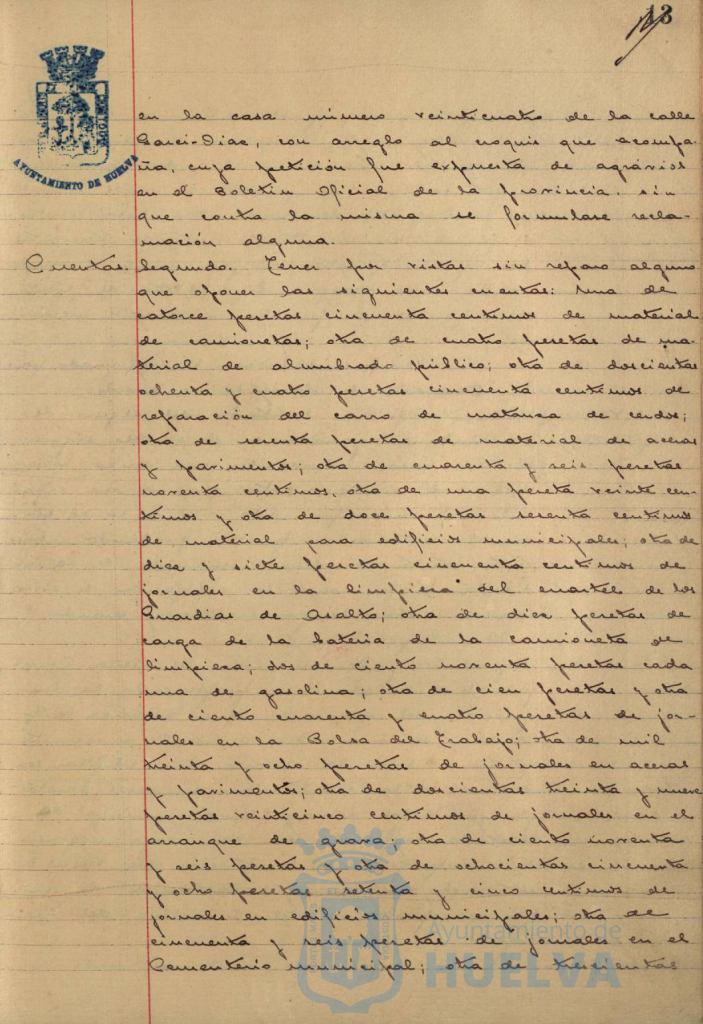 13
AYUNTAMIENTO DE HUELVA
en la casa número veinticuatro de la calle
Garci-Diaz, con arreglo al croquis que acompa-
ña, cuya petición fue expuesta de agravios
en el Boletin Oficial de la provincia, sin
que contra la misma se formulase recla-
mación alguna.
Cuentas. Segundo. Tener por vistas sin reparo alguno
que oponer las siguientes cuentas: Una de
catorce pesetas cincuenta centimos de material
de camionetas; otra de cuatro pesetas de ma-
terial de alumbrado público; otra de doscientas
ochenta y cuatro pesetas cincuenta centimos de
reparación del carro de matanza de cerdos;
otra de sesenta pesetas de material de aceras
y pavimentos; otra de cuarenta y seis pesetas
noventa centimos, otra de una peseta veinte cen-
timos y otra de doce pesetas sesenta centimos
de material para edificios municipales; otra de
diez y siete pesetas cincuenta centimos de
jornales en la limpieza del cuartel de los
Guardias de Asalto; otra de diez pesetas de
carga de la bateria de la camioneta de
limpieza; dos de ciento noventa pesetas cada
una de gasolina; otra de cien pesetas y otra
de ciento cuarenta y cuatro pesetas de jor-
nales en la Bolsa del Trabajo; otra de mil
treinta y ocho pesetas de jornales en aceras
y pavimentos; otra de doscientas treinta y nueve
pesetas veinticinco centimos de jornales en el
arranque de grava; otra de ciento noventa
y seis pesetas y otra de ochocientas cincuenta
y ocho pesetas setenta y cinco centimos de
jornales en edificios municipales; otra de
cincuenta y seis pesetas de jornales en el
Cementerio municipal; otra de trescientas
Ayuntamiento de
HUELVA